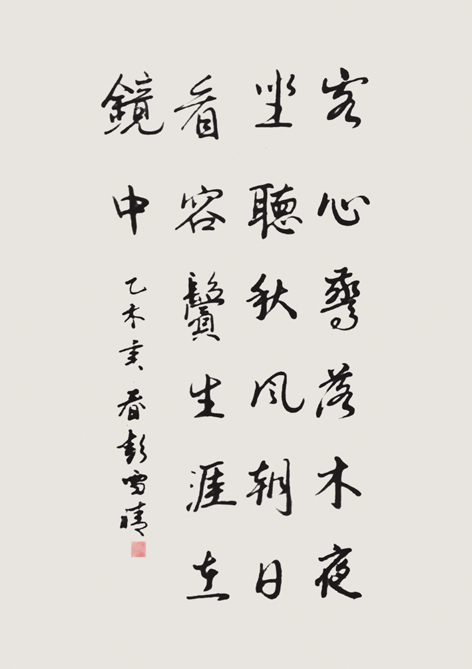 客心驚落木夜
坐聽秋風朝日
看容鬢生涯在
鏡中
乙木亥春彭雪晴